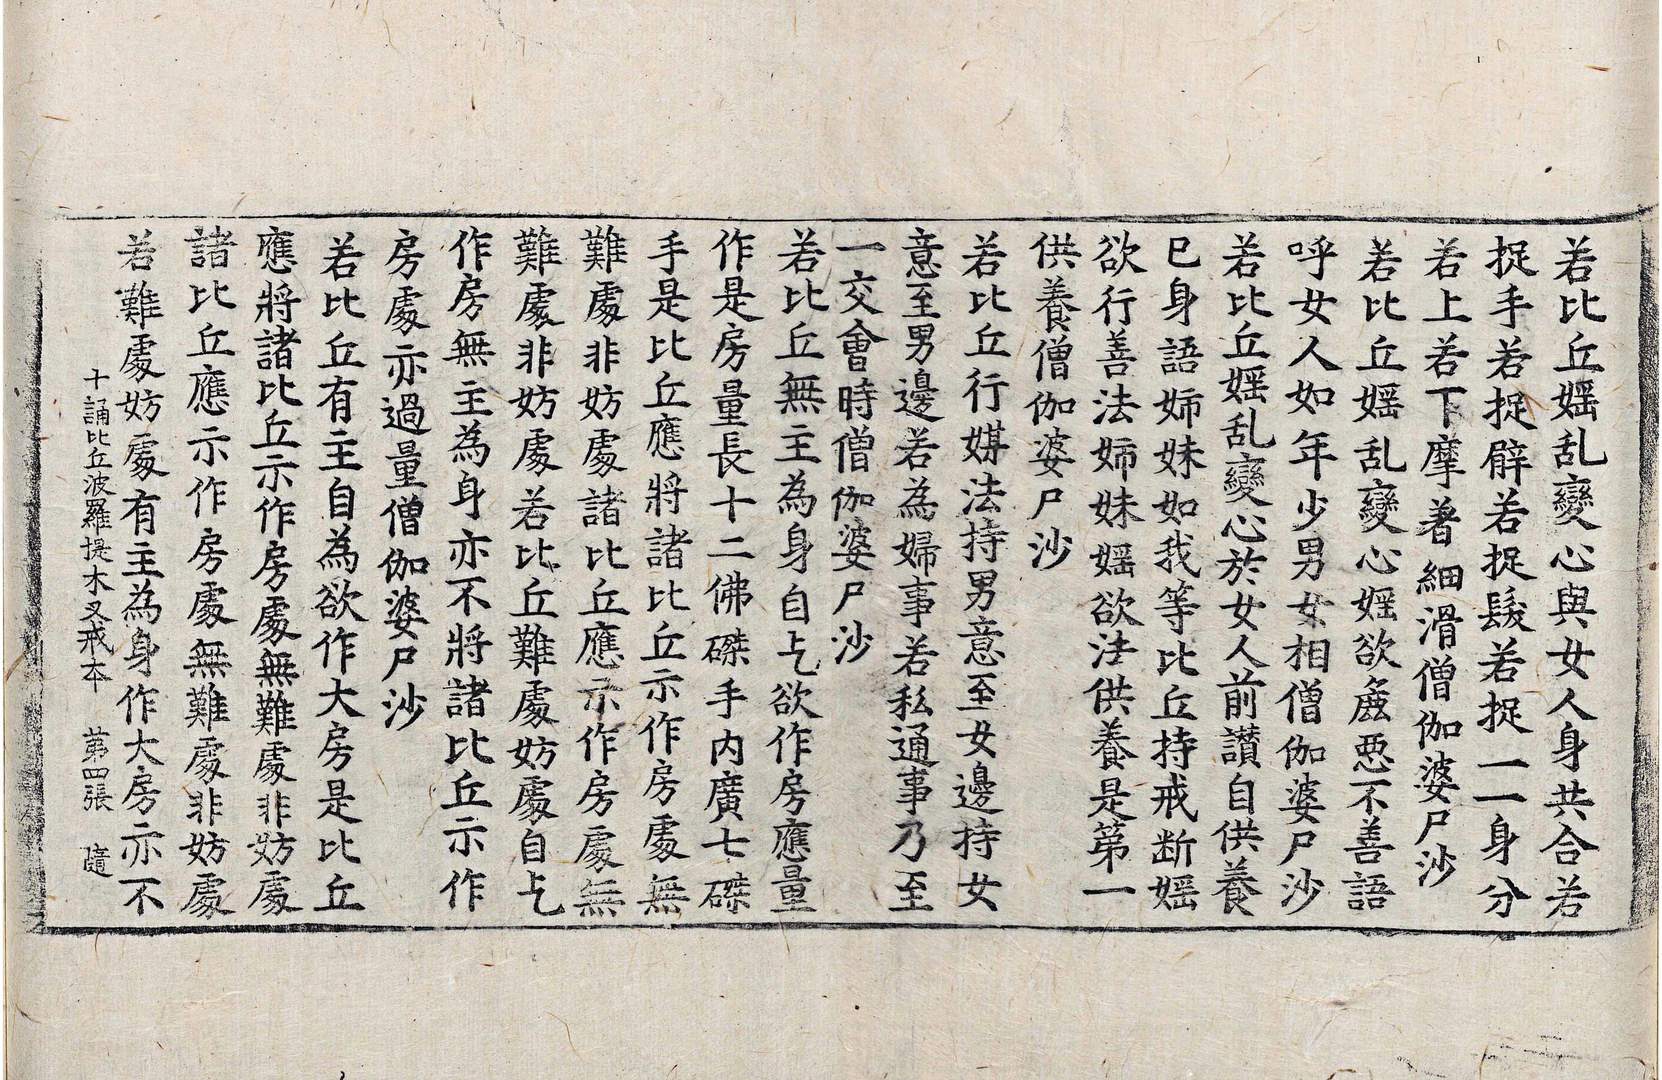 若比丘婬乱變心與女人身共合若
捉手若捉臂若捉髮若捉一一身分
若上若下摩著細滑僧伽婆尸沙
若比丘婬乱變心婬欲麁惡不善語
呼女人如年少男女相僧伽婆尸沙
若比丘婬乱變心於女人前讃自供養
已身語姉妹如我等比丘持戒断婬
欲行善法姉妹婬欲法供養是第一
供養僧伽婆尸沙
若比丘行媒法持男意至女邊持女
意至男邊若為婦事若私通事乃至
一交會時僧伽婆尸沙
若比丘無主為身自乞欲作房應量
作是房量長十二佛磔手内廣七磔
手是比丘應將諸比丘示作房處無
難處非妨處諸比丘應示作房處無
難處非妨處若比丘難處妨處自乞
作房無主為身亦不將諸比丘示作
房處亦過量僧伽婆尸沙
若比丘有主自為欲作大房是比丘
應將諸比丘示作房處無難處非妨處
諸比丘應示作房處無難處非妨處
若難處妨處有主為身作大房亦不
十誦比丘波羅提木叉戒本 第四張 隨